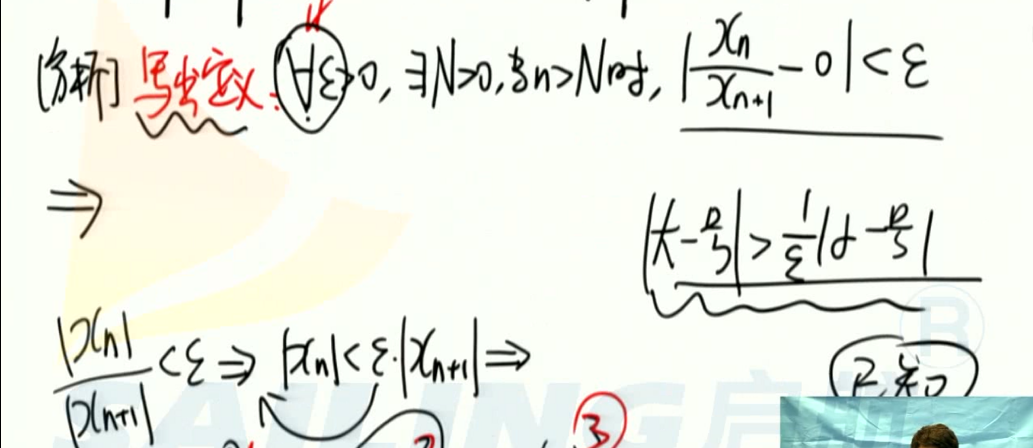 [分析] 写出定义: ∀ε>0, ∃N>0, 当n>N时, |xₙ/xₙ₊₁ - 0| < ε
⇒
|xₙ|/|xₙ₊₁| < ε ⇒ |xₙ| < ε·|xₙ₊₁| ⇒
已知
③
SAILING 启航
®